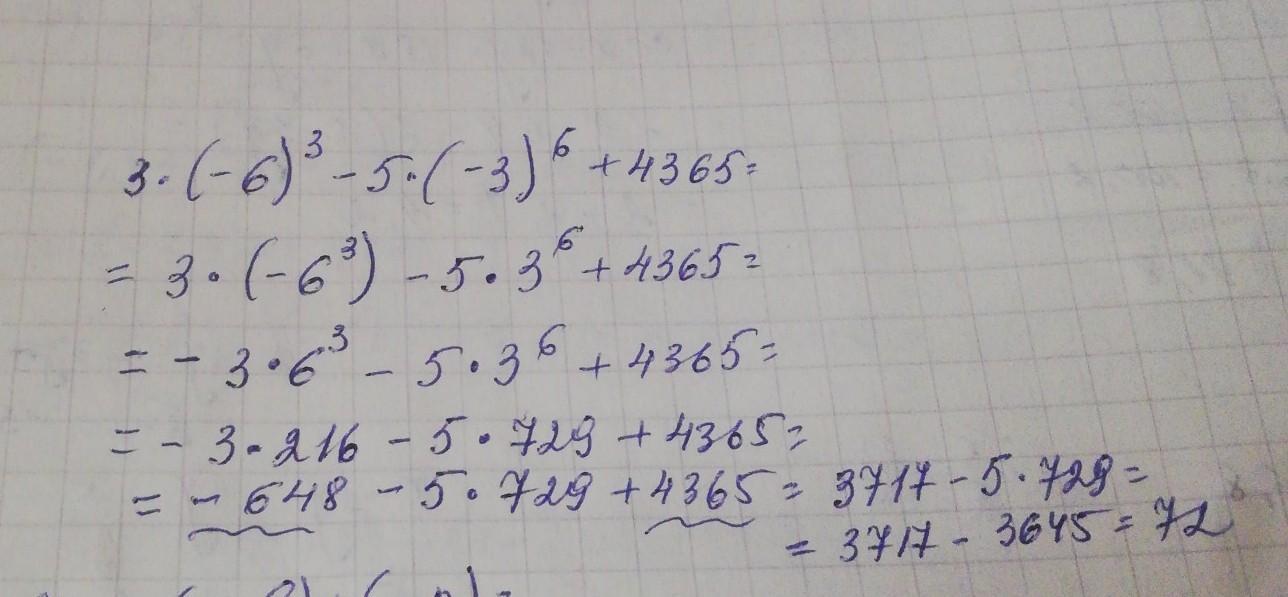 3·(-6)³ - 5·(-3)⁶ + 4365=
= 3·(-6³) - 5·3⁶ + 4365=
= - 3·6³ - 5·3⁶ + 4365=
= - 3·216 - 5·729 + 4365=
= - 648 - 5·729 + 4365 = 3717 - 5·729=
= 3717 - 3645 = 72